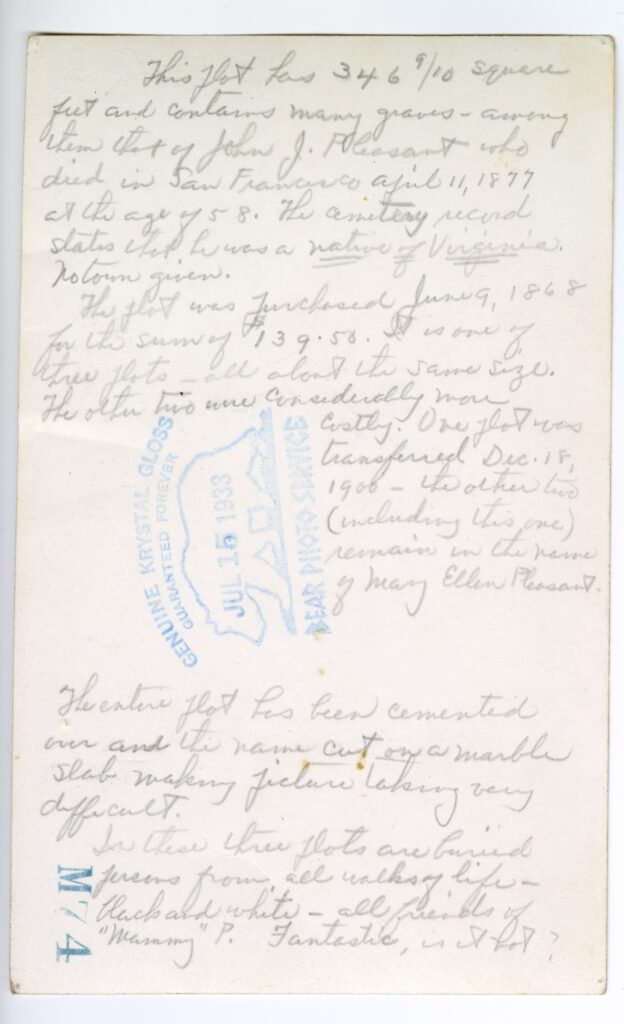 This plot has 346 9/10 square
feet and contains many graves - among
them that of John J. Pleasant who
died in San Francisco april 11, 1877
at the age of 58. The cemetery record
states that he was a native of Virginia.
No town given.
The plot was purchased June 9, 1868
for the sum of $139.50. It is one of
three plots - all about the same size.
The other two were considerably more
costly. One plot was
transferred Dec. 18,
1900 - the other two
(including this one)
remain in the name
of Mary Ellen Pleasant.
GENUINE KRYSTAL GLOSS
GUARANTEED FOREVER
JUL 15 1933
BEAR PHOTO SERVICE
The entire plot has been cemented
over and the name cut on a marble
slab making picture taking very
difficult.
In these three plots are buried
persons from all walks of life -
black and white - all friends of
"Mammy" P. Fantastic, is it not?
M74